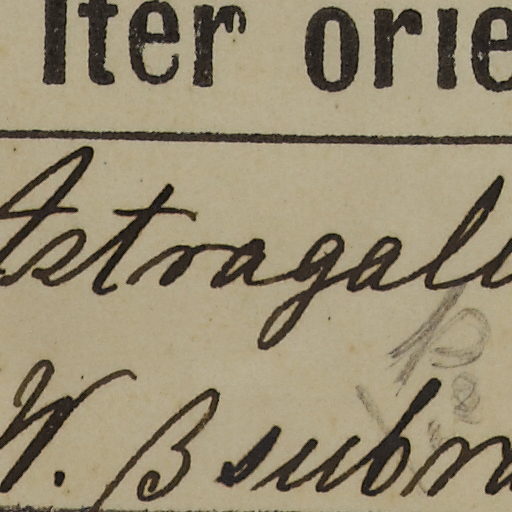 Iter orie
Astragalu
W. β subru